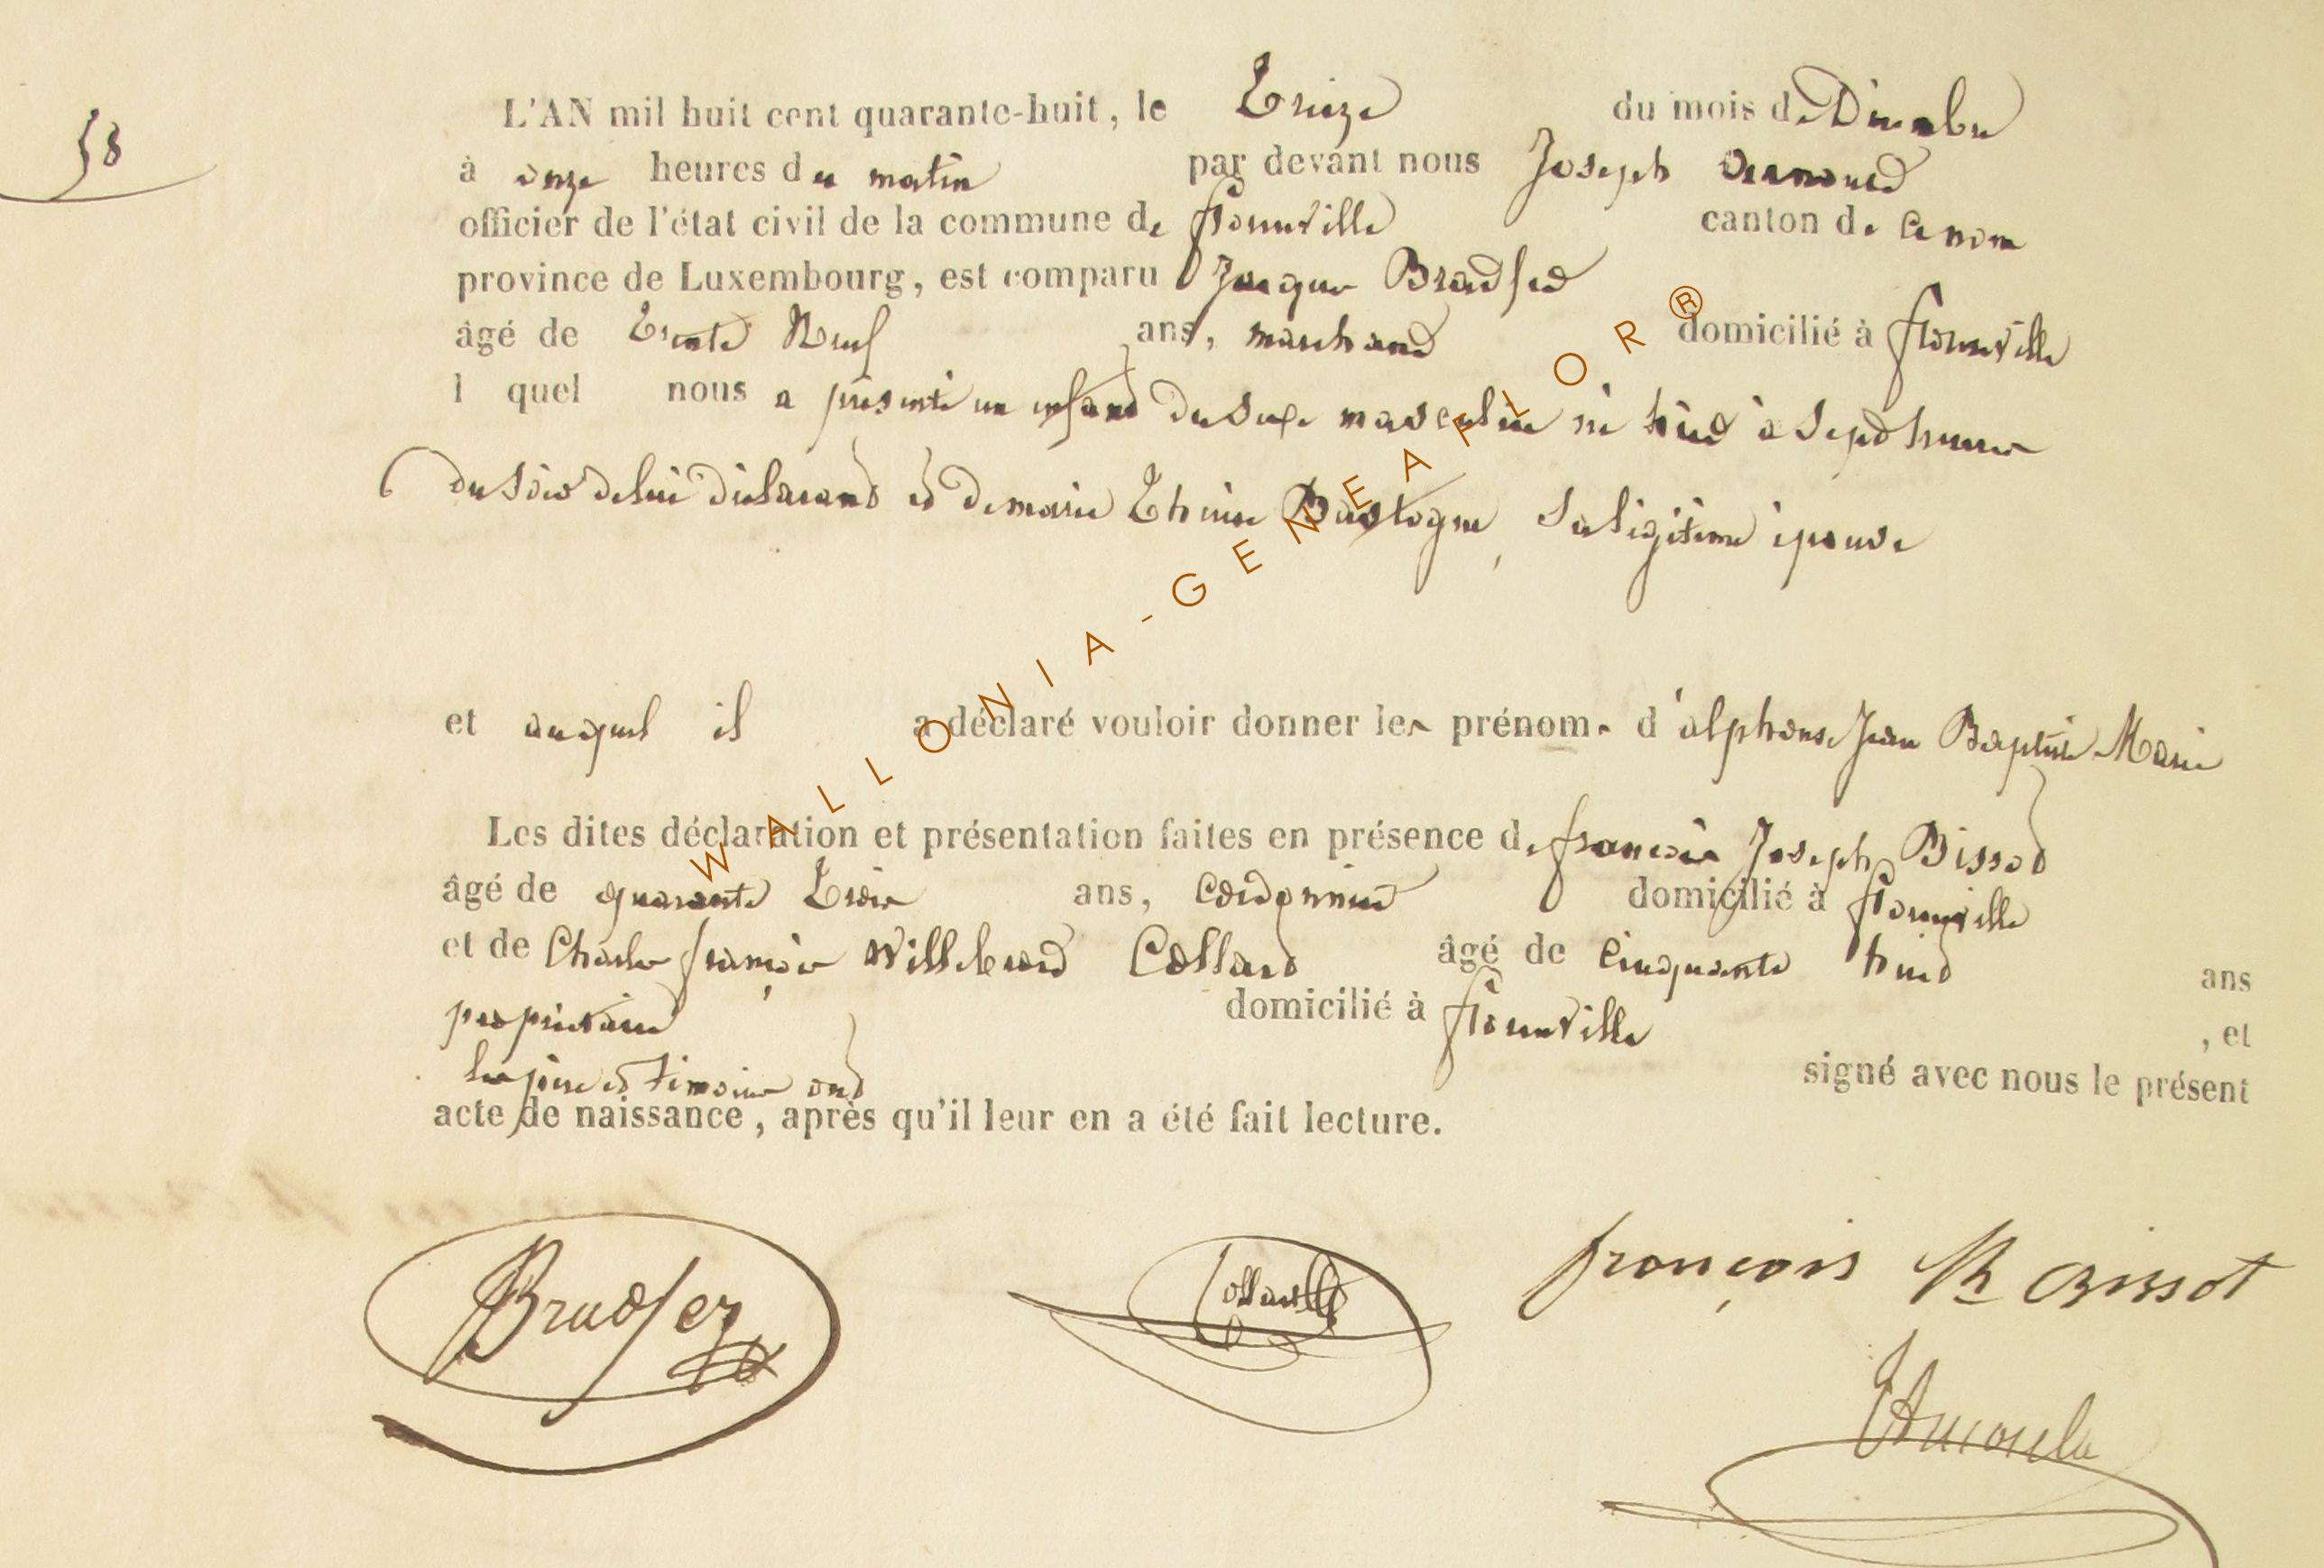 58
L'AN mil huit cent quarante-huit, le Treize du mois de Décembre
à onze heures du matin par devant nous Joseph
officier de l'état civil de la commune de florenville canton de ce nom
province de Luxembourg, est comparu Jacques
âgé de Trente Neuf ans, marchand domicilié à florenville
l quel nous a présenté un enfant du sexe masculin né hier à sept heures
du soir de lui déclarant et de marie Thérèse Bastogne, sa légitime épouse
et auquel il a déclaré vouloir donner les prénoms d'alphonse Jean Baptiste Marie
Les dites déclaration et présentation faites en présence de françois Joseph Bissot
âgé de quarante Trois ans, Cordonnier domicilié à florenville
et de Charles françois Willebrord Collard âgé de cinquante huit ans
propriétaire domicilié à florenville , et
les père et témoins ont signé avec nous le présent
acte de naissance, après qu'il leur en a été fait lecture.
françois
WALLONIA-GENEAFLOR®